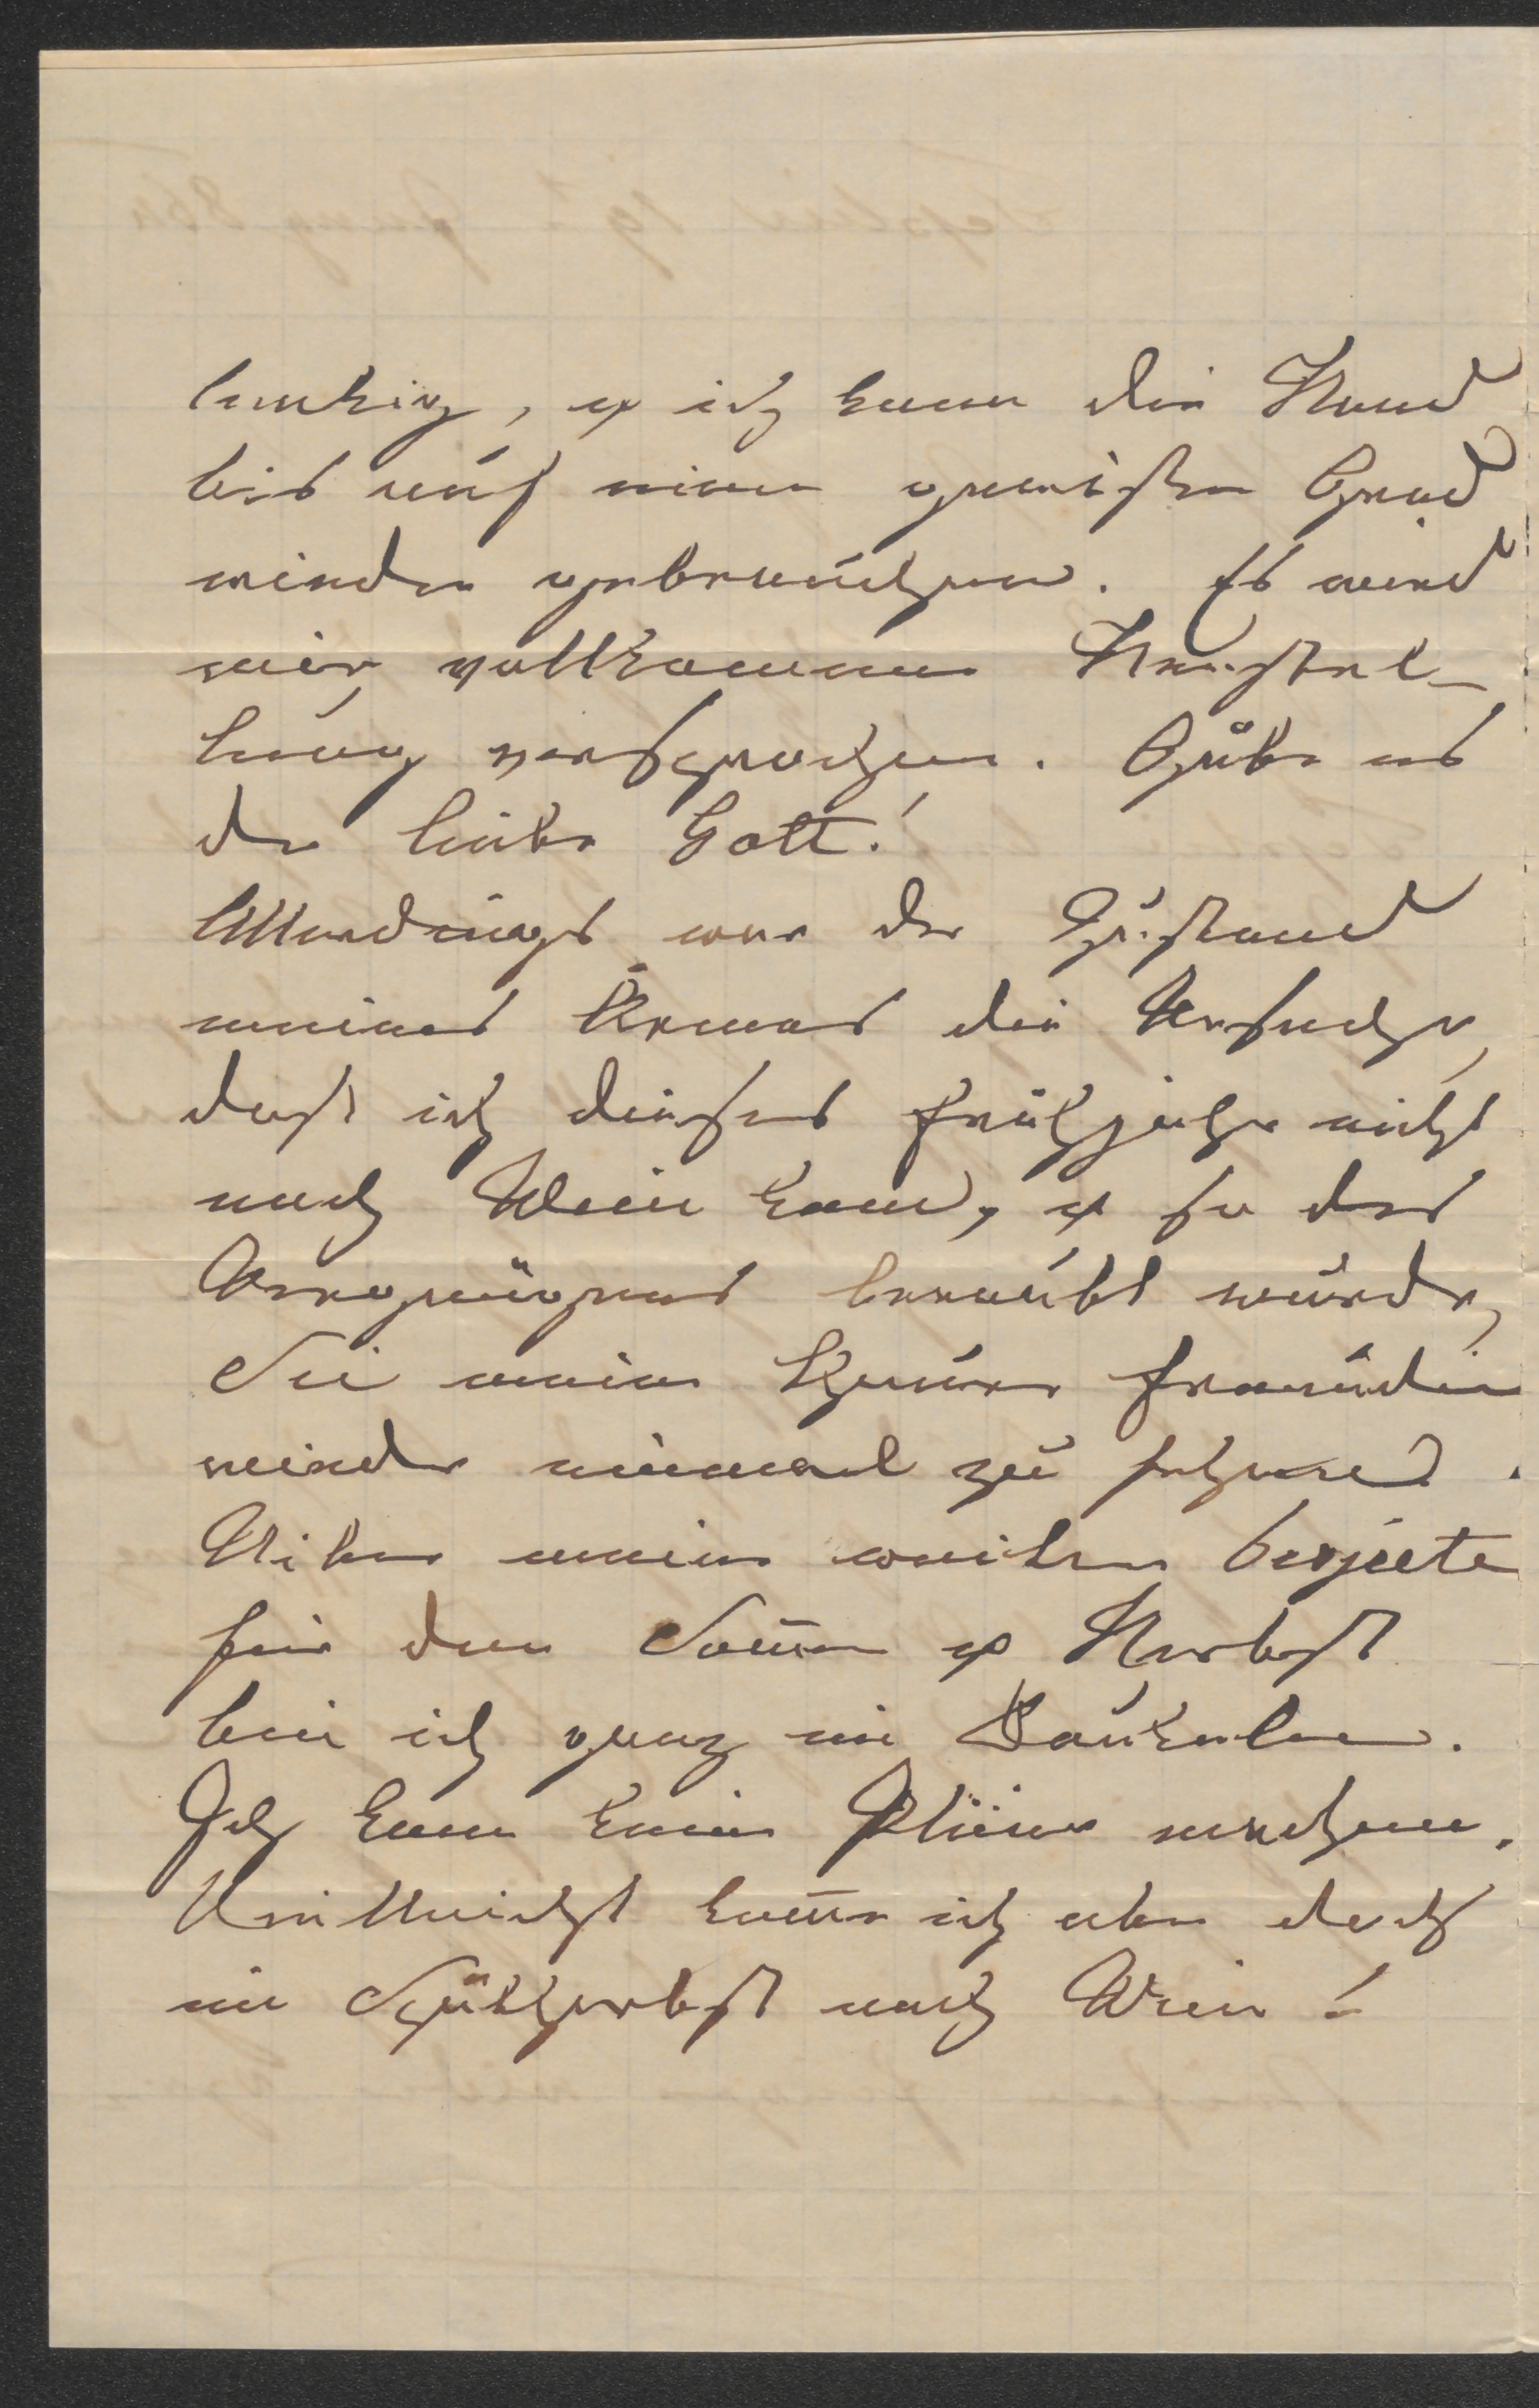 , & ich kann die Hand
bis auf einen gewissen Grad
wieder gebrauchen. Es wird
mir vollkommene Herstel-
lung versprochen. Gebe es
der liebe Gott!
Allerdings war der Zustand
meines Armes die Ursache,
daß ich dieses Frühjahr nicht
nach Wien kam, & so des
Vergnügens beraubt wurde,
Sie meine theure Freundin
wieder einmal zu sehen.
Über meine weitern
für den Som̅er & Herbst
bin ich ganz im Dunkeln.
Ich kann keine Pläne machen.
Vielleicht kom̅e ich aber doch
im Spätherbst nach Wien!